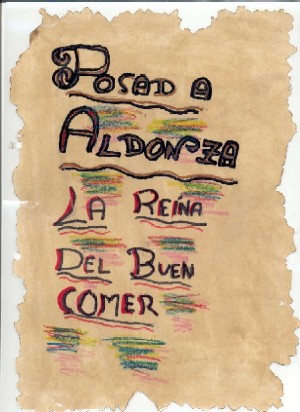 POSAD A
ALDONZA
LA REINA
DEL BUEN
COMER